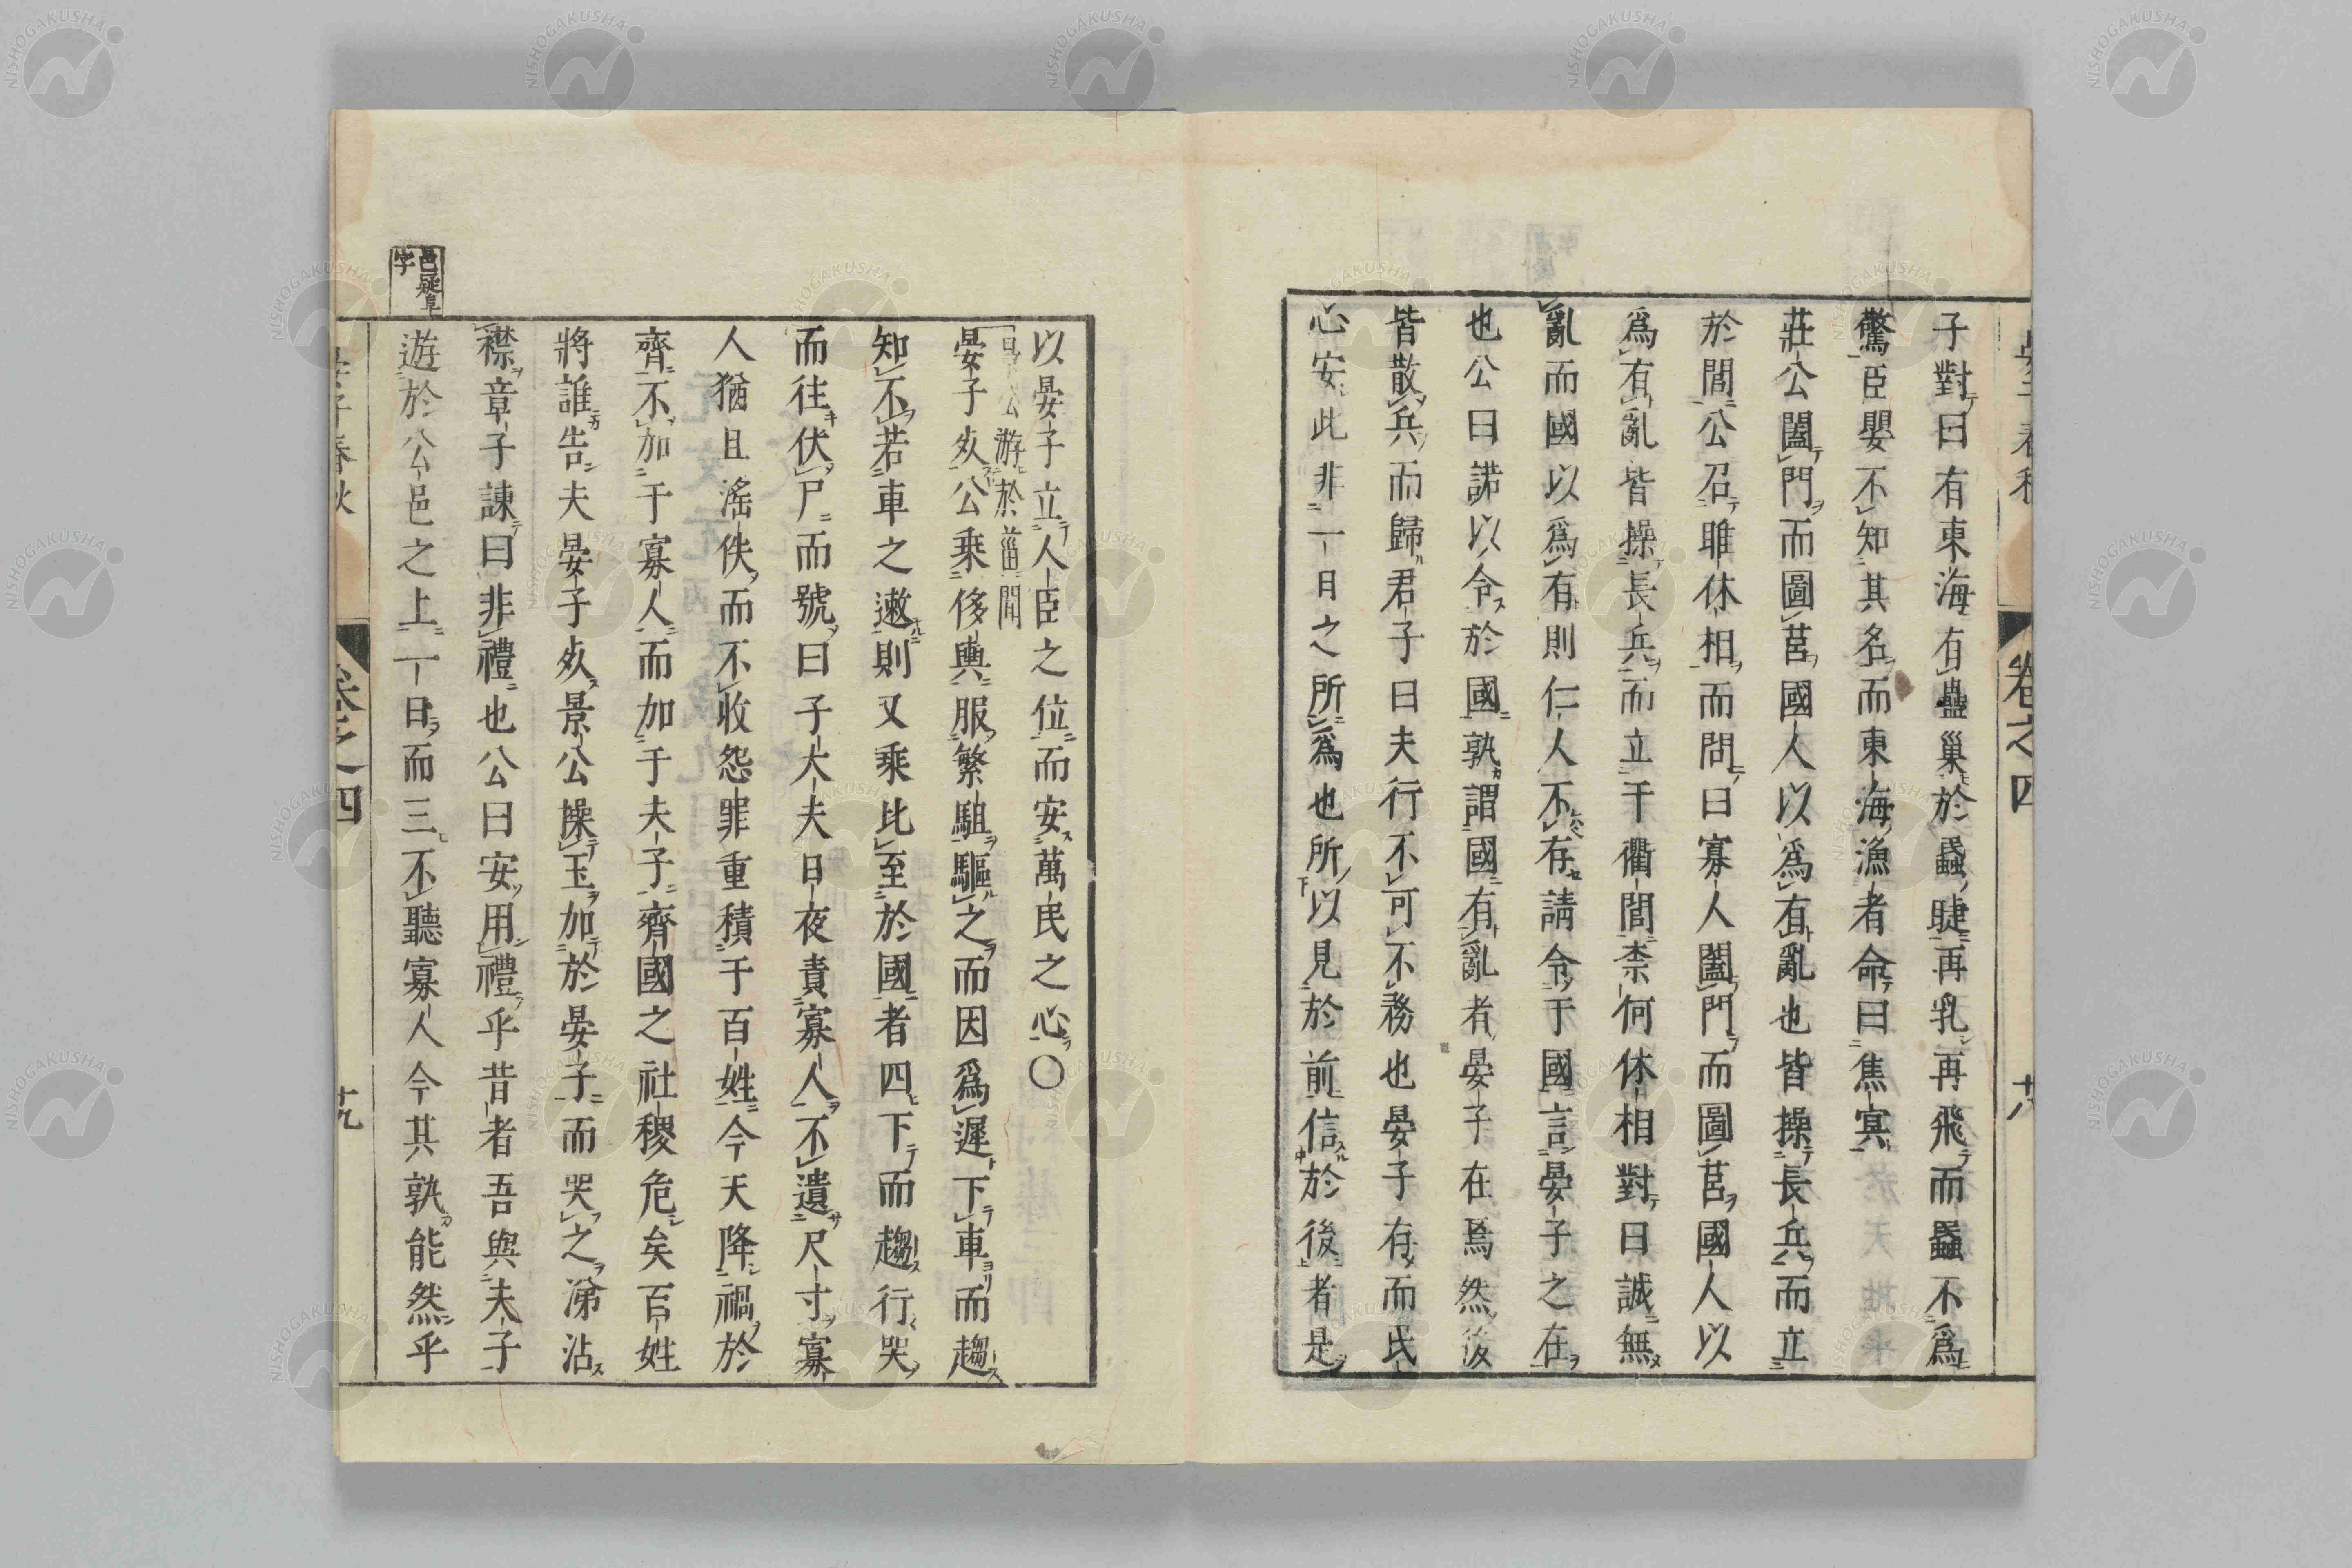 子對曰有東海有蠱巢於蟁睫再乳再飛而蟁不爲
驚臣嬰不知其名而東海漁者命曰焦冥
莊公闔門而圖莒國人以爲有亂也皆操長兵而立
於閭公召睢休相而問曰寡人闔門而圖莒國人以
爲有亂皆操長兵而立于衢閭柰何休相對曰誠無
亂而國以爲有則仁人不存請令于國言晏子之在
也公曰諾以令於國孰謂國有亂者晏子在焉然後
皆散兵而歸君子曰夫行不可不務也晏子有而民
心安此非一日之所爲也所以見於前信於後者是
卷之四
以晏子立人臣之位而安萬民之心〇
景公游於菑聞
晏子死公乘侈輿服繁駔驅之而因爲遲下車而趨
知不若車之遫則又乘比至於國者四下而趨行哭
而往伏尸而號曰子大夫日夜責寡人不遺尺寸寡
人猶且滛佚而不收怨罪重積于百姓今天降禍於
齊不加于寡人而加于夫子齊國之社稷危矣百姓
將誰告夫晏子死景公操玉加於晏子而哭之涕沾
襟章子諫曰非禮也公曰安用禮乎昔者吾與夫子
遊於公邑之上一日而三不聽寡人今其孰能然乎
邑疑阜
字
晏子春秋
卷之四